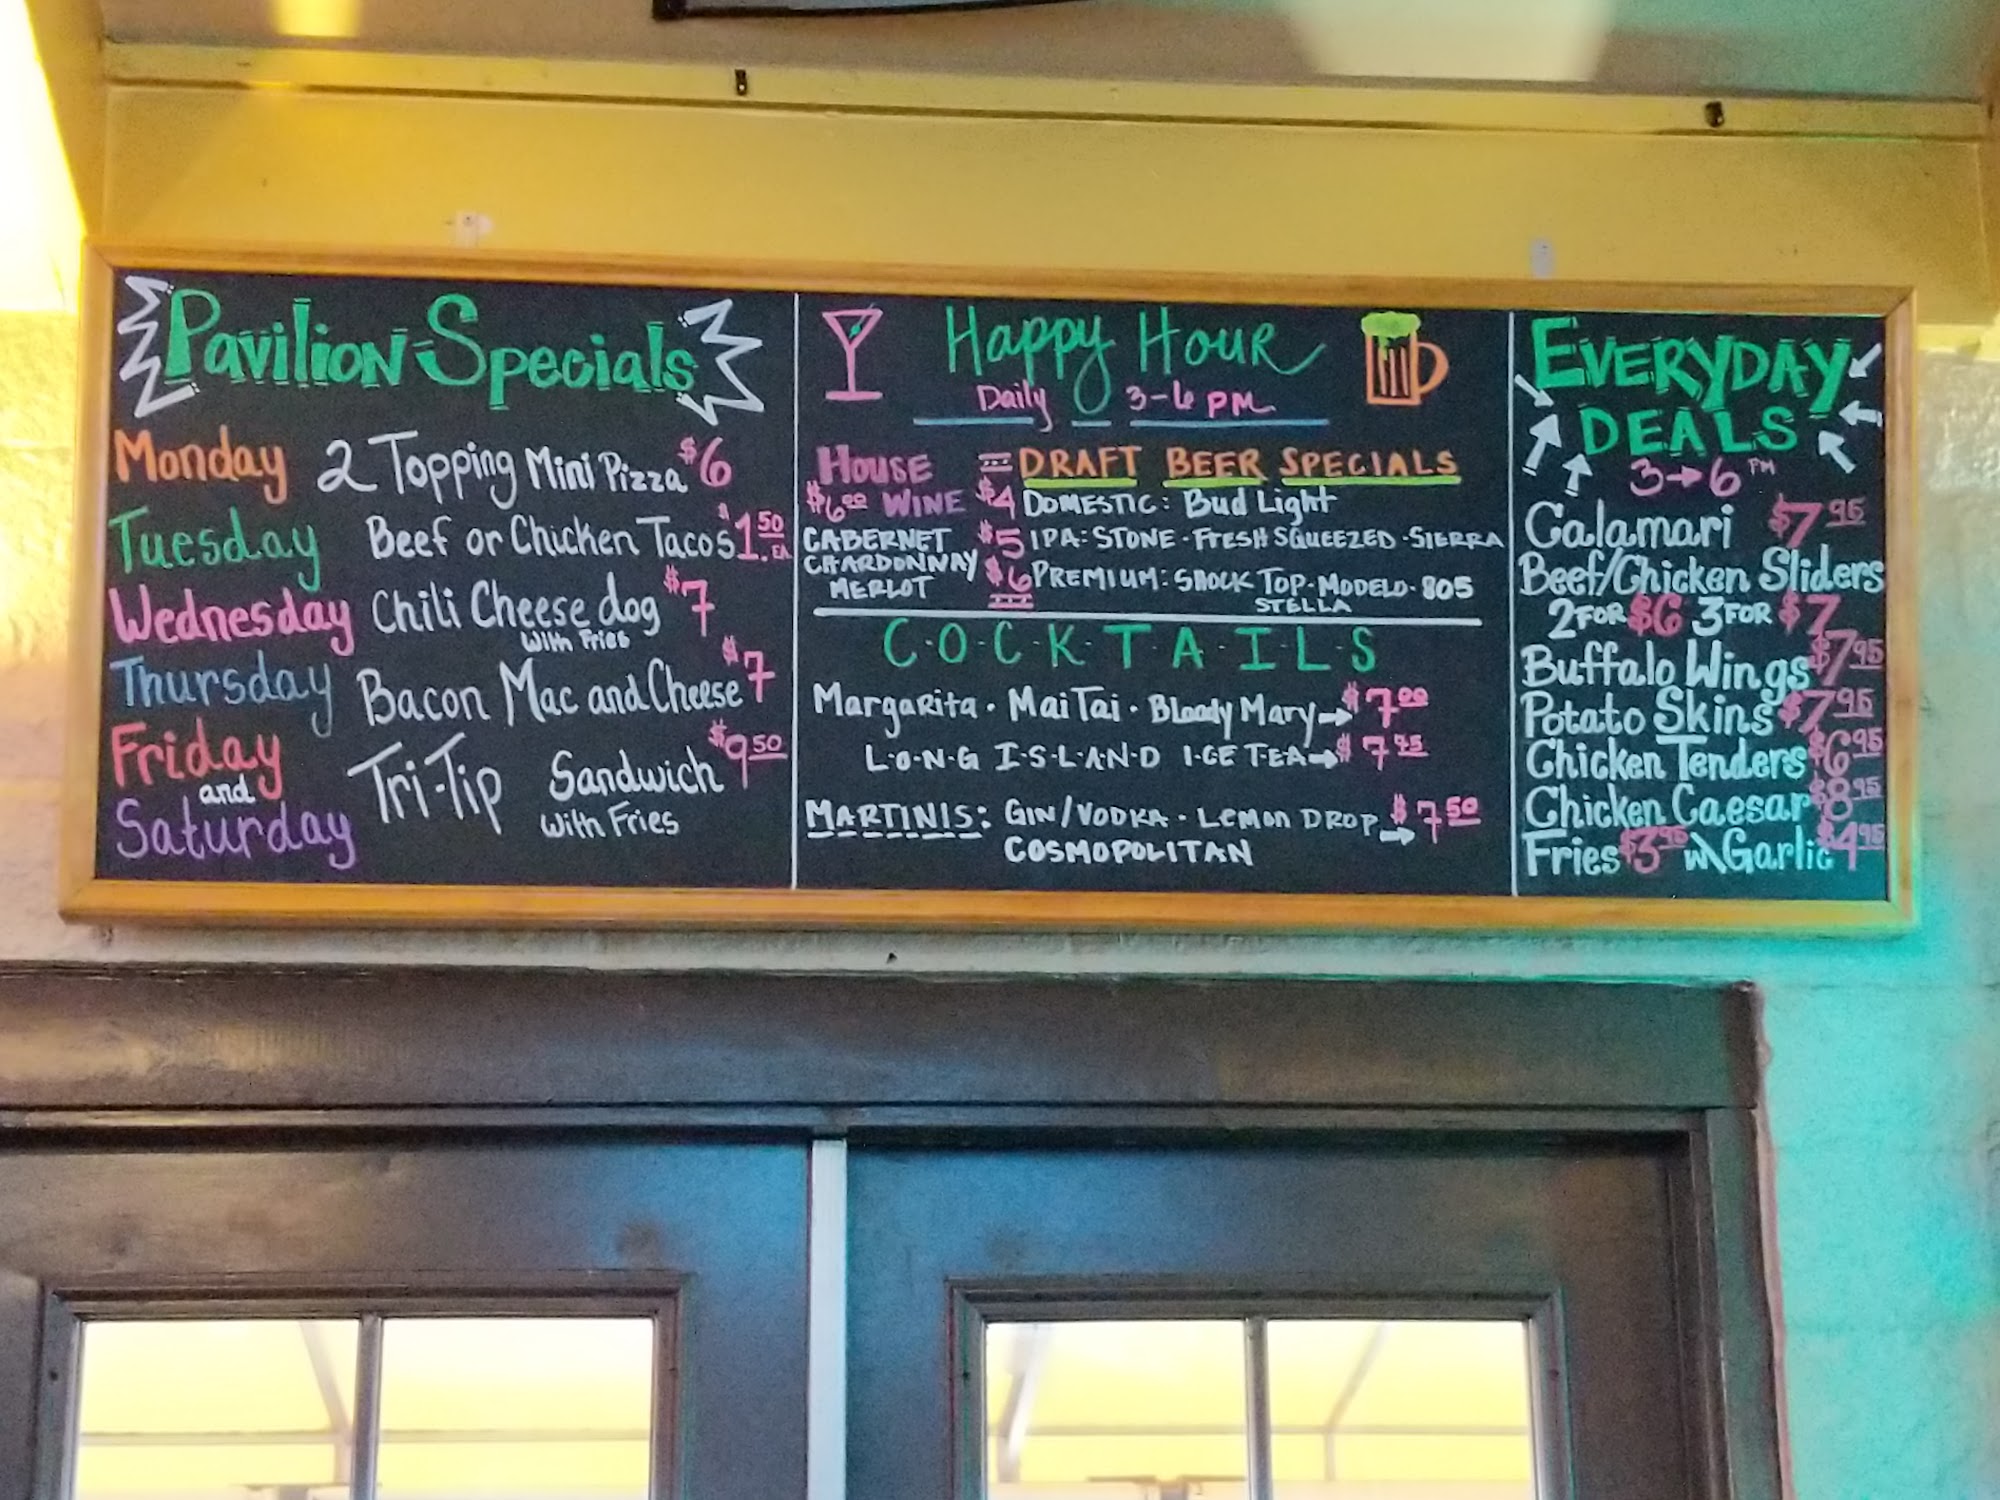 Pavilion Specials
Monday 2 Topping Mini Pizza $6
Tuesday Beef or Chicken Tacos $1.50 EA.
Wednesday Chili Cheese dog $7
With Fries
Thursday Bacon Mac and Cheese $7
Friday and Saturday Tri-Tip Sandwich $9.50
with Fries
Happy Hour
Daily 3-6 PM
House
$6.00 WINE
CABERNET
CHARDONNAY
MERLOT
DRAFT BEER SPECIALS
$4 DOMESTIC: Bud Light
$5 IPA: STONE · FRESH SQUEEZED · SIERRA
$6 PREMIUM: SHOCK TOP · MODELO · 805
STELLA
C·O·C·K·T·A·I·L·S
Margarita · Mai Tai · Bloody Mary → $7.00
L·O·N·G I·S·L·A·N·D I·CE TEA → $7.95
MARTINIS: GIN/VODKA · Lemon DROP → $7.50
COSMOPOLITAN
EVERYDAY
DEALS
3→6 PM
Calamari $7.95
Beef/Chicken Sliders
2 FOR $6 3 FOR $7
Buffalo Wings $7.95
Potato Skins $7.95
Chicken Tenders $6.95
Chicken Caesar $8.95
Fries $3.95 w/Garlic $4.95